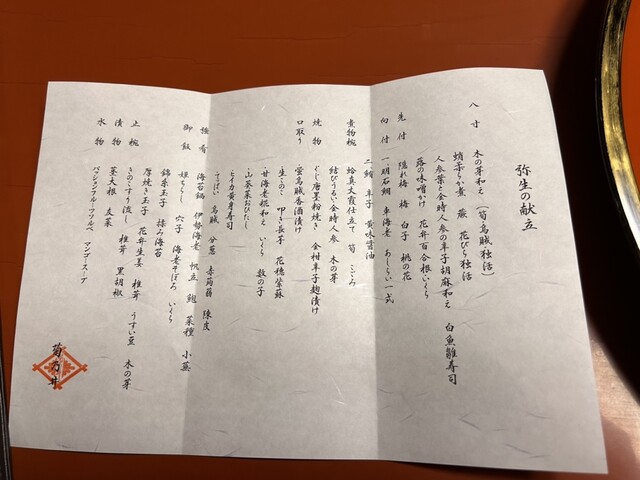 弥生の献立
八寸 木の芽和え (筍 烏賊 独活)
蛸柔らか煮 蕨 花びら独活
人参葉と金時人参の辛子胡麻和え 白魚雛寿司
蕗の味噌かけ 花弁百合根 いくら
先付 隠れ梅 梅 白子 桃の花
向付 一、明石鯛 車海老 あしらい一式
二、鮪 辛子 黄味醤油
煮物椀 蛤真丈霞仕立て 筍 こごみ
結びうるい 金時人参 木の芽
焼物 ぐじ唐墨粉焼き 金柑辛子麹漬け
口取り 蛍烏賊香酒漬け
生このこ 叩き長芋 花穂紫蘇
甘海老糀和え いくら 数の子
山菜菜おひたし
とイカ黄身寿司
烏賊 分葱 赤蒟蒻 陳皮
強肴 海苔鍋 伊勢海老 帆立 鮑 菜種 小蕪
御飯 姫ちらし 穴子 海老そぼろ いくら
錦糸玉子 揉み海苔
厚焼き玉子 花弁生姜 椎茸 うすい豆 木の芽
止椀 きのこすり流し 椎茸 黒胡椒
漬物 茎大根 友菜
水物 パッションフルーツソルベ マンゴースープ
菊乃井